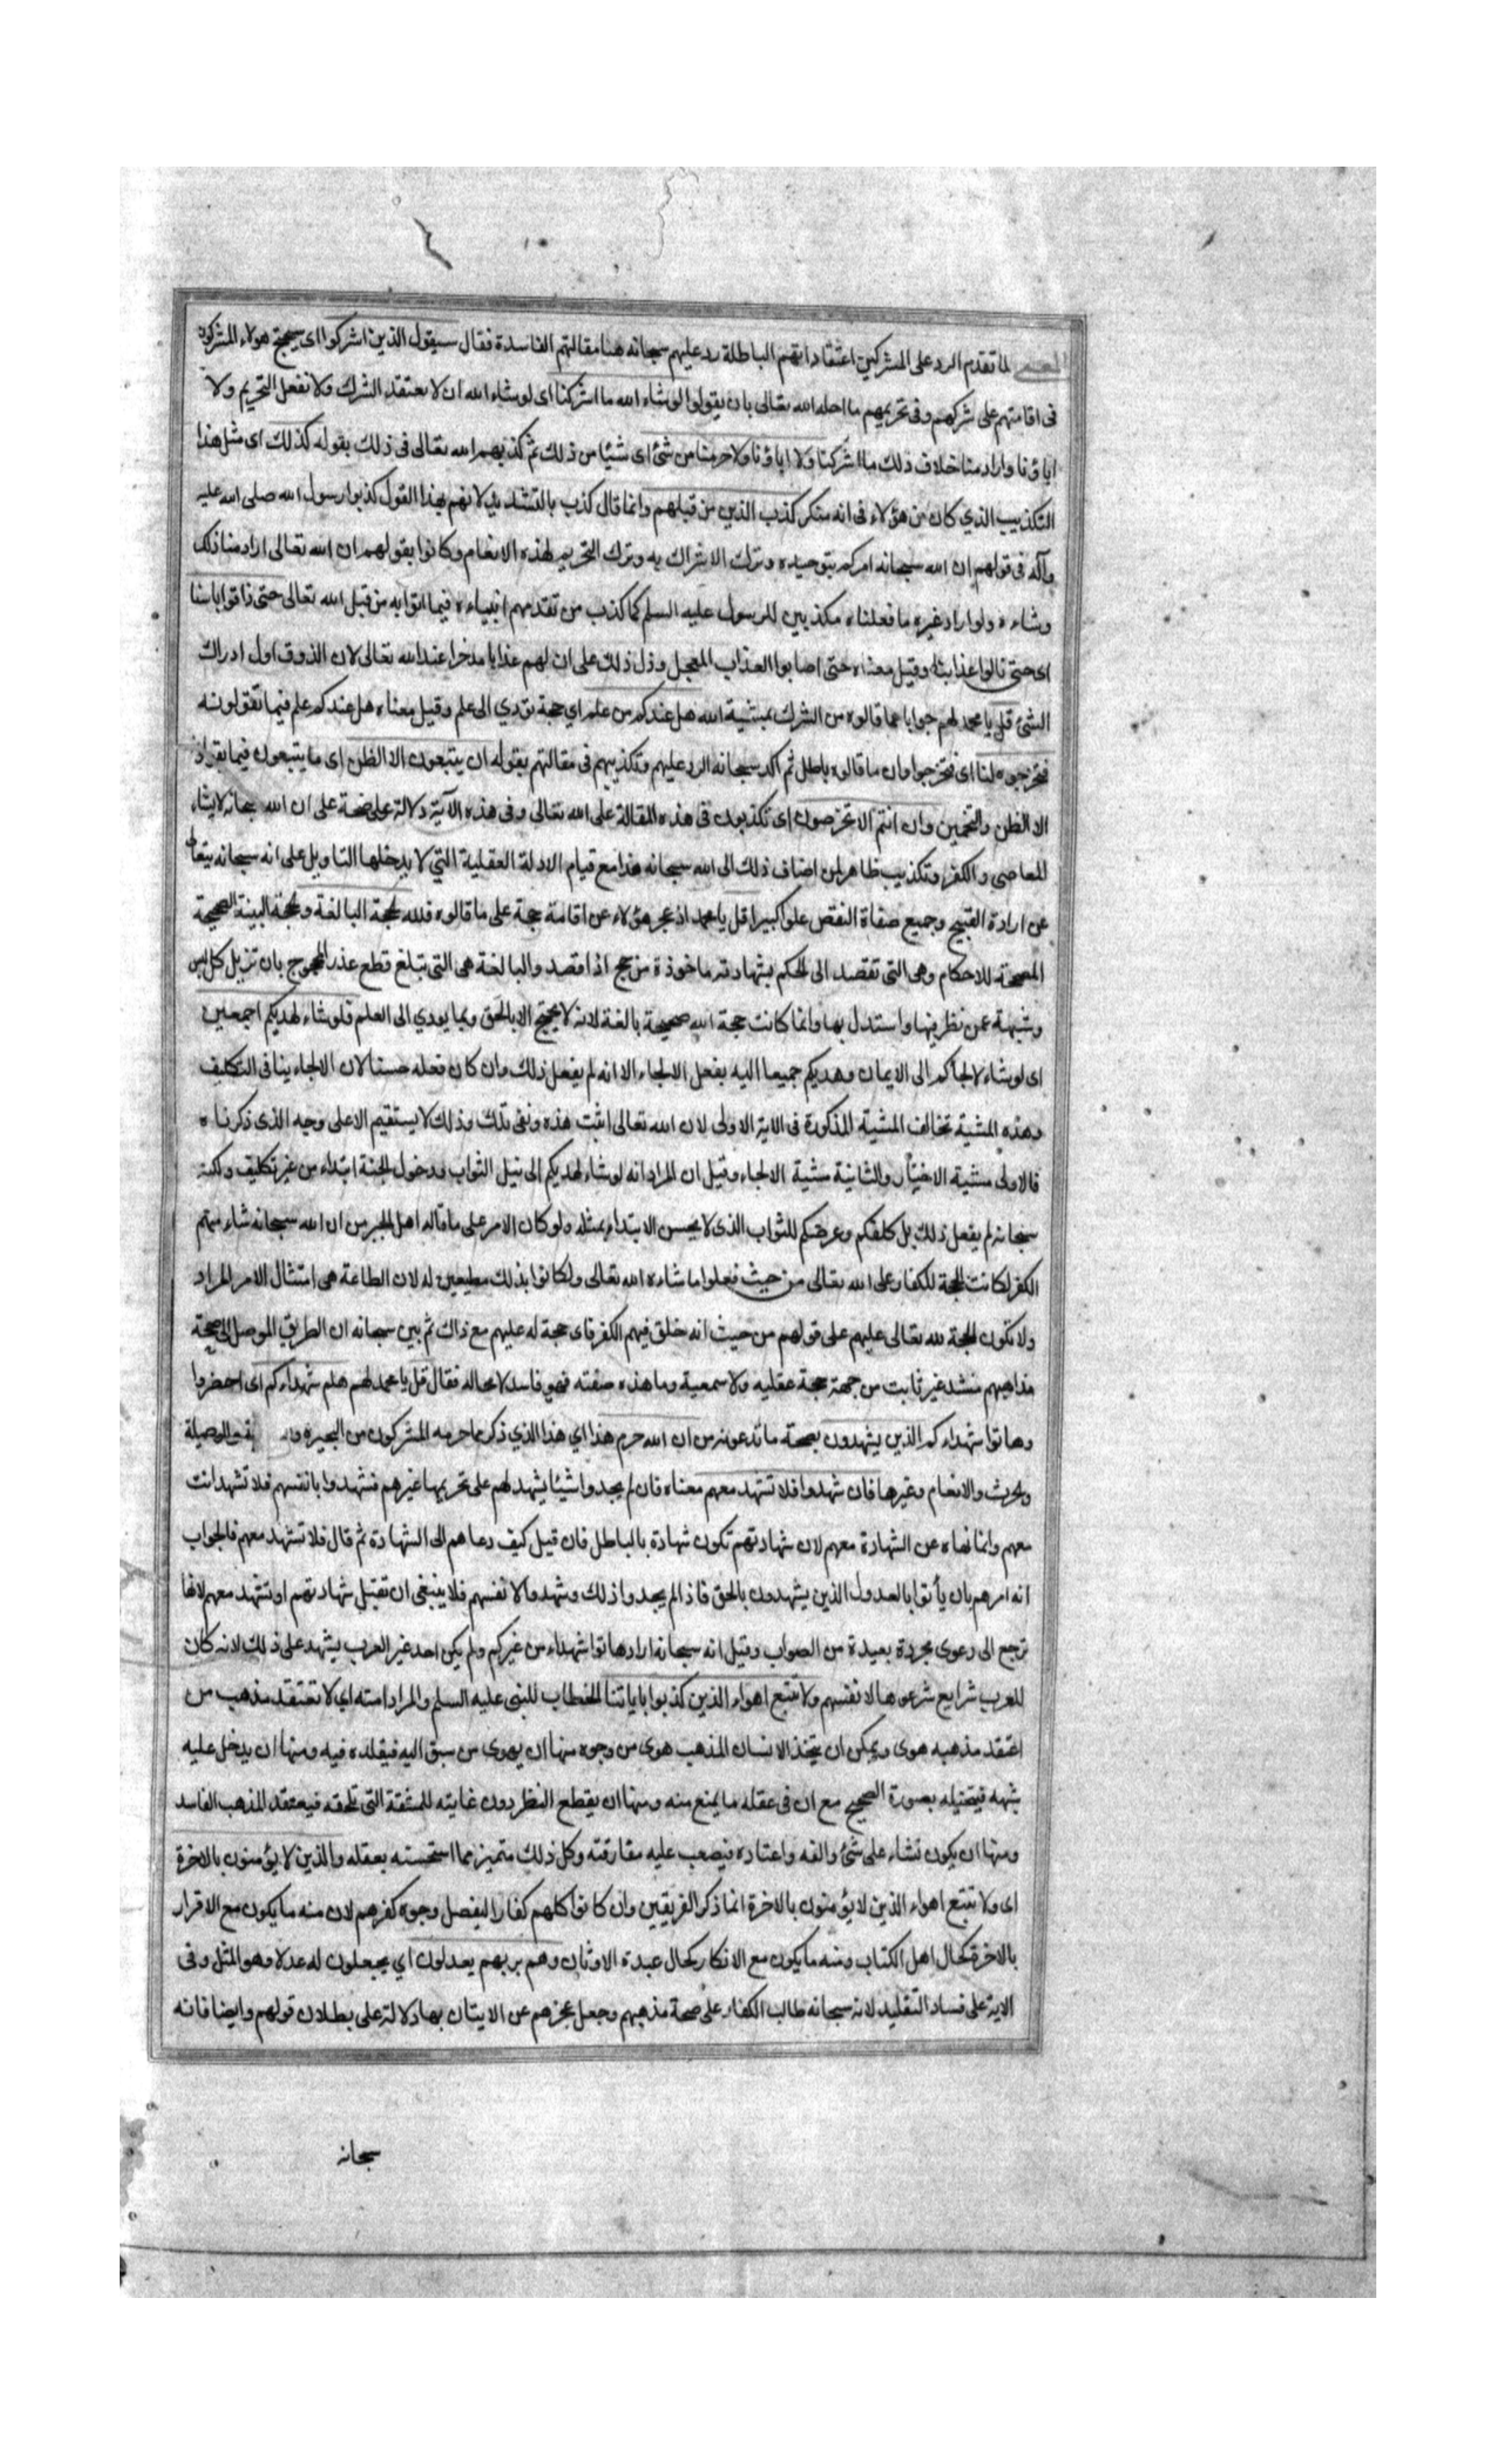 المعنى لما تقدم الرد على المشركين اعتقاداتهم الباطلة رد عليهم سبحانه هنا مقالتهم الفاسدة فقال سيقول الذين اشركوا اى سيحتج هولاء المشركون
فى اقامتهم على شركهم وفى تحريمهم ما احله الله تعالى بان يقولوا لو شاء الله ما اشركنا اى لو شاء الله ان لا نعتقد الشرك ولا نفعل التحريم ولا
اباؤنا واراد منا خلاف ذلك ما اشركنا ولا اباؤنا ولا حرمنا من شئ اى شيئا من ذلك ثم كذبهم الله تعالى فى ذلك بقوله كذلك اى مثل هذا
التكذيب الذي كان من هؤلاء فى انه منكر كذب الذين من قبلهم وانما قال كذب بالتشديد لانهم بهذا القول كذبوا رسول الله صلى الله عليه
وآله فى قولهم ان الله سبحانه امركم بتوحيده وترك الاشراك به وترك التحريم لهذه الانعام وكانوا بقولهم ان الله تعالى اراد منا ذلك
وشاءه ولو اراد غيره ما فعلناه مكذبين للرسول عليه السلم كما كذب من تقدمهم انبياءه فيما اتوا به من قبل الله تعالى حتى ذاقوا باسنا
اى حتى نالوا عذابنا وقيل معناه حتى اصابوا العذاب المعجل ودل ذلك على ان لهم عذابا مدخرا عند الله تعالى لان الذوق اول ادراك
الشئ قل يا محمد لهم جوابا عما قالوه من الشرك بمشية الله هل عندكم من علم اي حجة تؤدي الى علم وقيل معناه هل عندكم علم فيما تقولونه
فتخرجوه لنا اى فتخرجوا وان ما قالوه باطل ثم اكد سبحانه الرد عليهم وتكذيبهم فى مقالتهم بقوله ان يتبعون الا الظن اى ما يتبعون فيما
الا الظن والتخمين وان انتم الا تخرصون اى تكذبون فى هذه المقالة على الله تعالى وفى هذه الآية دلالة واضحة على ان الله سبحانه لا يشاء
المعاصى والكفر وتكذيب ظاهر لمن اضاف ذلك الى الله سبحانه هذا مع قيام الادلة العقلية التي لا يدخلها التاويل على انه سبحانه يتعالى
عن ارادة القبيح وجميع صفاة النقص علوا كبيرا قل يا محمد اذ عجز هؤلاء عن اقامة حجة على ما قالوه فلله الحجة البالغة والحجة البينة الصحيحة
المصححة للاحكام وهى التى تقصد الى الحكم بشهادته ماخوذة من حج اذا قصد والبالغة هى التى تبلغ قطع عذر المحجوج بان تزيل كل لبس
وشبهة عمن نظر فيها واستدل بها وانما كانت حجة الله صحيحة بالغة لانه لا يحتج الا بالحق وبما يودي الى العلم فلو شاء لهديكم اجمعين
اى لو شاء لالجاكم الى الايمان وهديكم جميعا اليه بفعل الالجاء الا انه لم يفعل ذلك وان كان فعله حسنا لان الالجاء ينافى التكليف
وهذه المشية تخالف المشية المذكورة فى الاية الاولى لان الله تعالى اثبت هذه ونفى تلك وذلك لا يستقيم الا على وجه الذى ذكرناه
فالاولى مشية الاختيار والثانية مشية الالجاء وقيل ان المراد انه لو شاء لهديكم الى نيل الثواب ودخول الجنة ابتداء من غير تكليف ولكنه
سبحانه لم يفعل ذلك بل كلفكم وعرضكم للثواب الذى لا يحسن الابتداء بمثله ولو كان الامر على ما قاله اهل الجبر من ان الله سبحانه شاء منهم
الكفر لكانت الحجة للكفار على الله تعالى من حيث فعلوا ما شاءه الله تعالى ولكانوا بذلك مطيعين له لان الطاعة هى امتثال الامر المراد
ولا تكون الحجة لله تعالى عليهم على قولهم من حيث انه خلق فيهم الكفر فاى حجة له عليهم مع ذلك ثم بين سبحانه ان الطريق الموصل الى صحة
مذاهبهم منسد غير ثابت من جهة حجة عقليه ولا سمعية وما هذه صفته فهو فاسد لا محالة فقال قل يا محمد لهم هلم شهداءكم اى احضروا
وهاتوا شهداءكم الذين يشهدون بصحة ما تدعونه من ان الله حرم هذا اي هذا الذي ذكر مما حرمه المشركون من البحيرة والوصيلة
والحرث والانعام وغيرها فان شهدوا فلا تشهد معهم معناه فان لم يجدوا شيئا يشهد لهم على تحريمها غيرهم فشهدوا بانفسهم فلا تشهد انت
معهم وانما نهاه عن الشهادة معهم لان شهادتهم تكون شهادة بالباطل فان قيل كيف دعاهم الى الشهادة ثم قال فلا تشهد معهم فالجواب
انه امرهم بان يأتوا بالعدول الذين يشهدون بالحق فاذا لم يجدوا ذلك وشهدوا لانفسهم فلا ينبغى ان تقبل شهادتهم او تشهد معهم لانها
ترجع الى دعوى مجردة بعيدة من الصواب وقيل انه سبحانه اراد هاتوا شهداء من غيركم ولم يكن احد غير العرب يشهد على ذلك لانه كان
للعرب شرايع شرعوها لانفسهم ولا تتبع اهواء الذين كذبوا باياتنا الخطاب للنبى عليه السلم والمراد امته اي لا تعتقد مذهب من
اعتقد مذهبه هوى ويمكن ان يتخذ الانسان المذهب هوى من وجوه منها ان يهوى من سبق اليه فيقلده فيه ومنها ان يدخل عليه
شبهه فيتخيله بصورة الصحيح مع ان فى عقله ما يمنع منه ومنها ان يقطع النظر دون غايته للمشقة التى تلحقه فيعتقد المذهب الفاسد
ومنها ان يكون نشاء على شئ والفه واعتاده فيصعب عليه مفارقته وكل ذلك متميز مما استحسنه بعقله والذين لا يؤمنون بالاخرة
اى ولا تتبع اهواء الذين لا يؤمنون بالاخرة انما ذكر الفريقين وان كانوا كلهم كفارا ليفصل وجوه كفرهم لان منه ما يكون مع الاقرار
بالاخرة كحال اهل الكتاب ومنه ما يكون مع الانكار كحال عبدة الاوثان وهم بربهم يعدلون اي يجعلون له عدلا وهو المثل وفى
الاية على فساد التقليد لانه سبحانه طالب الكفار على صحة مذهبهم وجعل عجزهم عن الايتان بها دلالة على بطلان قولهم وايضا فانه
سبحانه